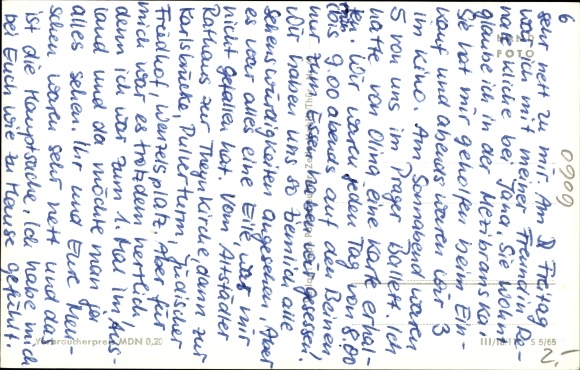 6
sehr nett zu mir. Am Freitag
war ich mit meiner Freundin Da-
bei Jana. Sie wohnt
glaube ich in der
Sie hat mir geholfen beim Ein-
kauf und abends waren wir 3
im Kino. Am Sonnabend waren
5 von uns im Prager Ballett. Ich
hatte von Olina eine Karte erhal-
ten. Wir waren jeden Tag von 8.00
bis 9.00 abends auf den Beinen
nur zum Essen haben wir gesessen!
Wir haben uns so ziemlich alle
Sehenswürdigkeiten angesehen. Aber
es war alles eine Eile, was mir
nicht gefallen hat. Vom Altstädter
Rathaus zur Theynkirche dann zur
Karlsbrücke, Pulverturm, jüdischer
Friedhof, Wenzelsplatz. Aber für
mich war es trotzdem herrlich
denn ich war zum 1. Mal im Aus-
land und da möchte man ja
alles sehen. Ihr und Eure Men-
schen waren sehr nett und das
ist die Hauptsache. Ich habe mich
bei Euch wie zu Hause gefühlt.
FOTO
Verbraucherpreis MDN 0,20
III/18 S 5/65
0909
2,-